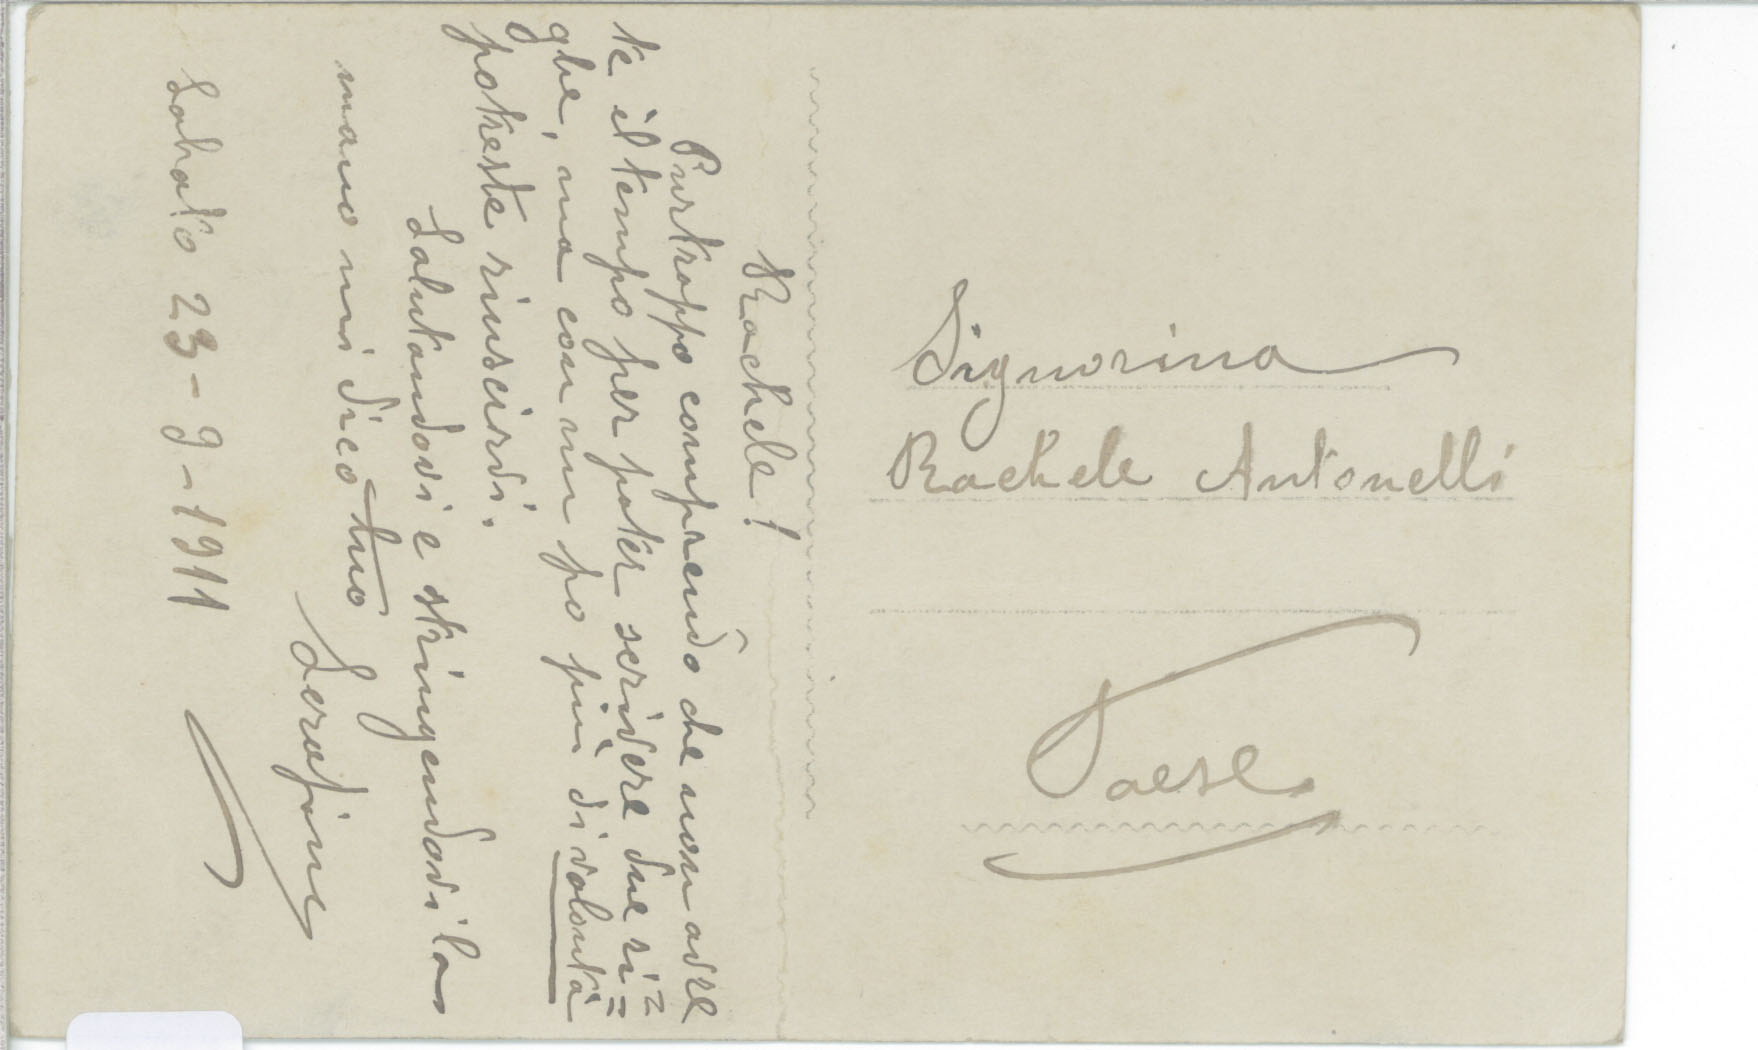 Rachele!
Purtroppo comprendo che non ave
te il tempo per poter scrivere due ri=
ghe, ma con un po più di volontà
potreste riuscirvi.
Salutandovi e stringendovi la
mano mi dico tuo
Serafino
Sabato 23-9-1911
Signorina
Rachele Antonelli
Paese